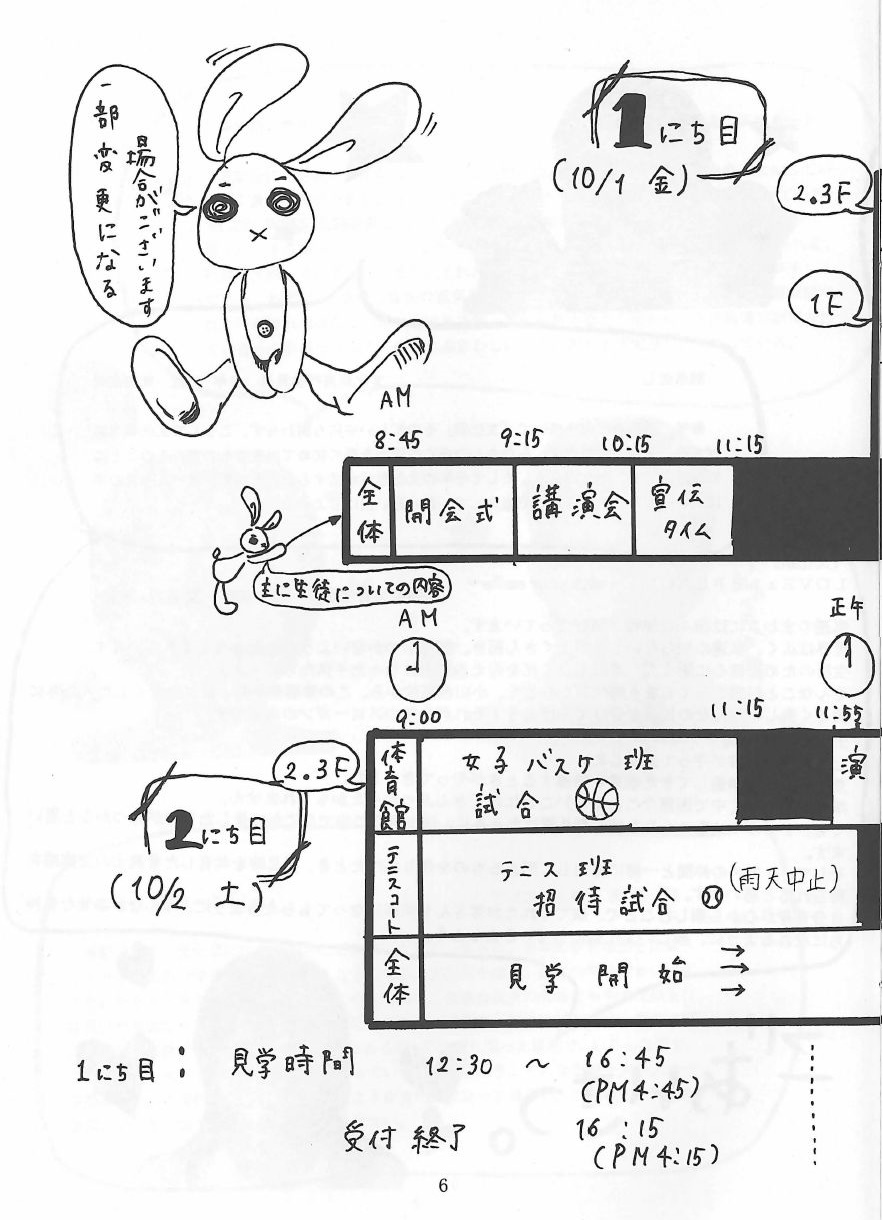 一部変更になる
場合がございます
1にち目
(10/1 金)
2.3F
1F
AM
8:45 9:15 10:15 11:15
全体 開会式 講演会 宣伝タイム
主に生徒についての内容
AM
正午
9:00 11:15 11:55
2.3F
体育館 女子バスケ班 試合 演
2にち目
(10/2 土)
テニスコート テニス班 招待試合 (雨天中止)
全体 見学開始 →→→
1にち目: 見学時間 12:30 〜 16:45
(PM4:45)
受付終了 16:15
(PM4:15)
6